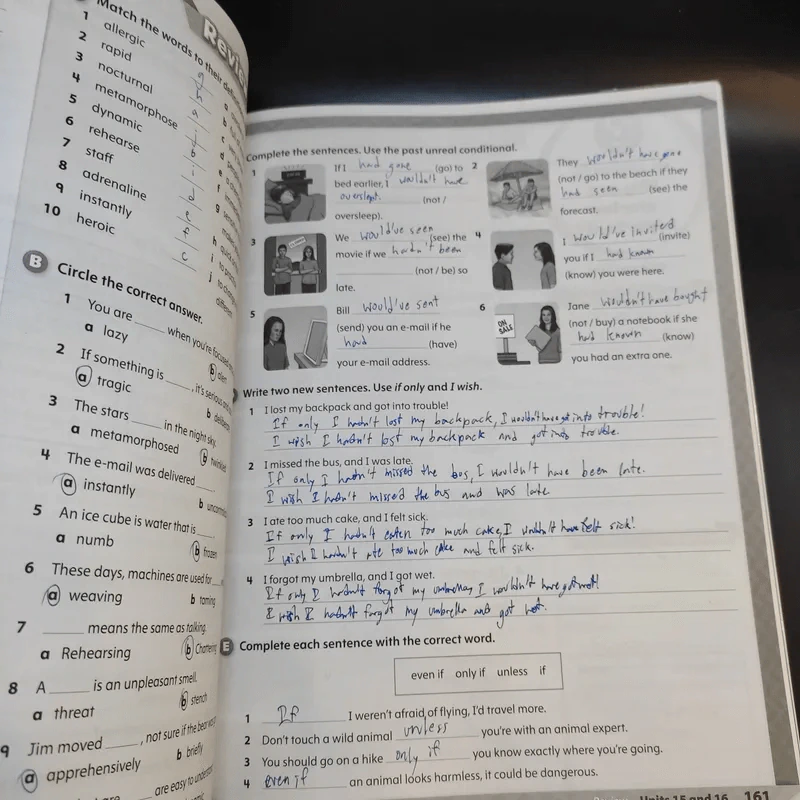 Review
Match the words to their
1 allergic
2 rapid
3 nocturnal
4 metamorphose
5 dynamic
6 rehearse
7 staff
8 adrenaline
9 instantly
10 heroic
g
h
a
j
b
i
d
e
f
c
B Circle the correct answer.
1 You are ____ when you're focused
a lazy
b alert
2 If something is ____, it's serious
a tragic
b deliberate
3 The stars ____ in the night sky.
a metamorphosed
b twinkled
4 The e-mail was delivered ____
a instantly
b
5 An ice cube is water that is ____
a numb
b frozen
6 These days, machines are used for ____
a weaving
b taming
7 ____ means the same as talking.
a Rehearsing
b Chattering
8 A ____ is an unpleasant smell.
a threat
b stench
9 Jim moved ____, not sure if the bear
a apprehensively
b briefly
____ are easy to
Complete the sentences. Use the past unreal conditional.
1 If I had gone (go) to
bed earlier, I wouldn't have
overslept. (not /
oversleep).
2 They wouldn't have gone
(not / go) to the beach if they
had seen (see) the
forecast.
3 We would've seen (see) the
movie if we hadn't been
(not / be) so
late.
4 I would've invited (invite)
you if I had known
(know) you were here.
5 Bill would've sent
(send) you an e-mail if he
had (have)
your e-mail address.
ON SALE
6 Jane wouldn't have bought
(not / buy) a notebook if she
had known (know)
you had an extra one.
Write two new sentences. Use if only and I wish.
1 I lost my backpack and got into trouble!
If only I hadn't lost my backpack, I wouldn't have got into trouble!
I wish I hadn't lost my backpack and got into trouble.
2 I missed the bus, and I was late.
If only I hadn't missed the bus, I wouldn't have been late.
I wish I hadn't missed the bus and was late
3 I ate too much cake, and I felt sick.
If only I hadn't eaten too much cake, I wouldn't have felt sick!
I wish I hadn't ate too much cake and felt sick.
4 I forgot my umbrella, and I got wet.
If only I hadn't forgot my umbrella, I wouldn't have got wet!
I wish I hadn't forgot my umbrella and got wet.
E Complete each sentence with the correct word.
even if only if unless if
1 If I weren't afraid of flying, I'd travel more.
2 Don't touch a wild animal unless you're with an animal expert.
3 You should go on a hike only if you know exactly where you're going.
4 even if an animal looks harmless, it could be dangerous.
Units 15 and 16 161